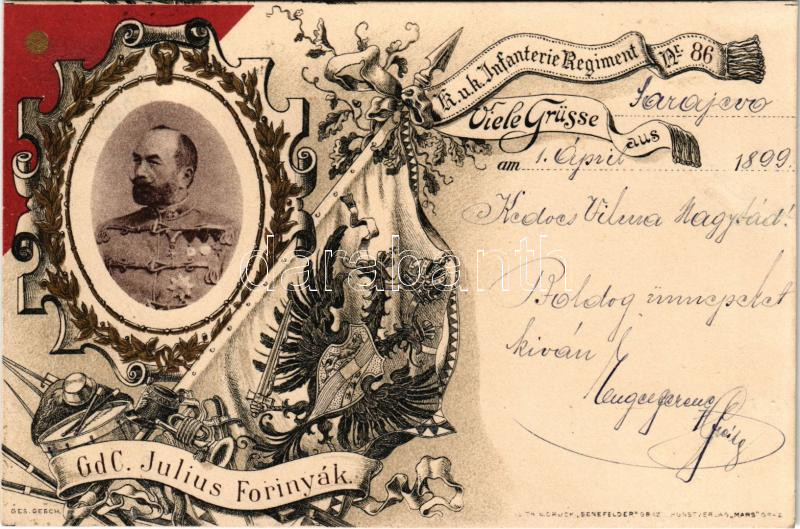 K.u.k. Infanterie Regiment Nr. 86
Viele Grüsse aus
Sarajevo
am 1. April 1899.
Kedves Vilma Nagysád!
Boldog ünnepeket
kiván
darabanth.com
GdC. Julius Forinyák.
GES. GESCH.
LITH. U. DRUCK „SENEFELDER" GRAZ KUNSTVERLAG „MARS" GRAZ